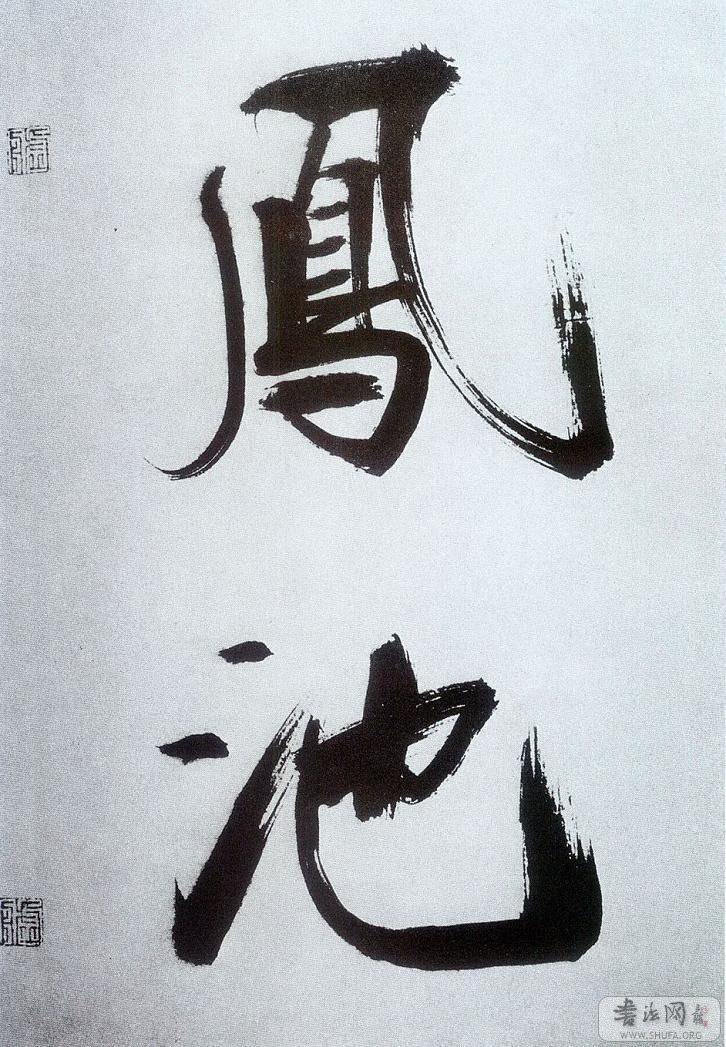 鳳池
书法网
WWW.SHUFA.ORG